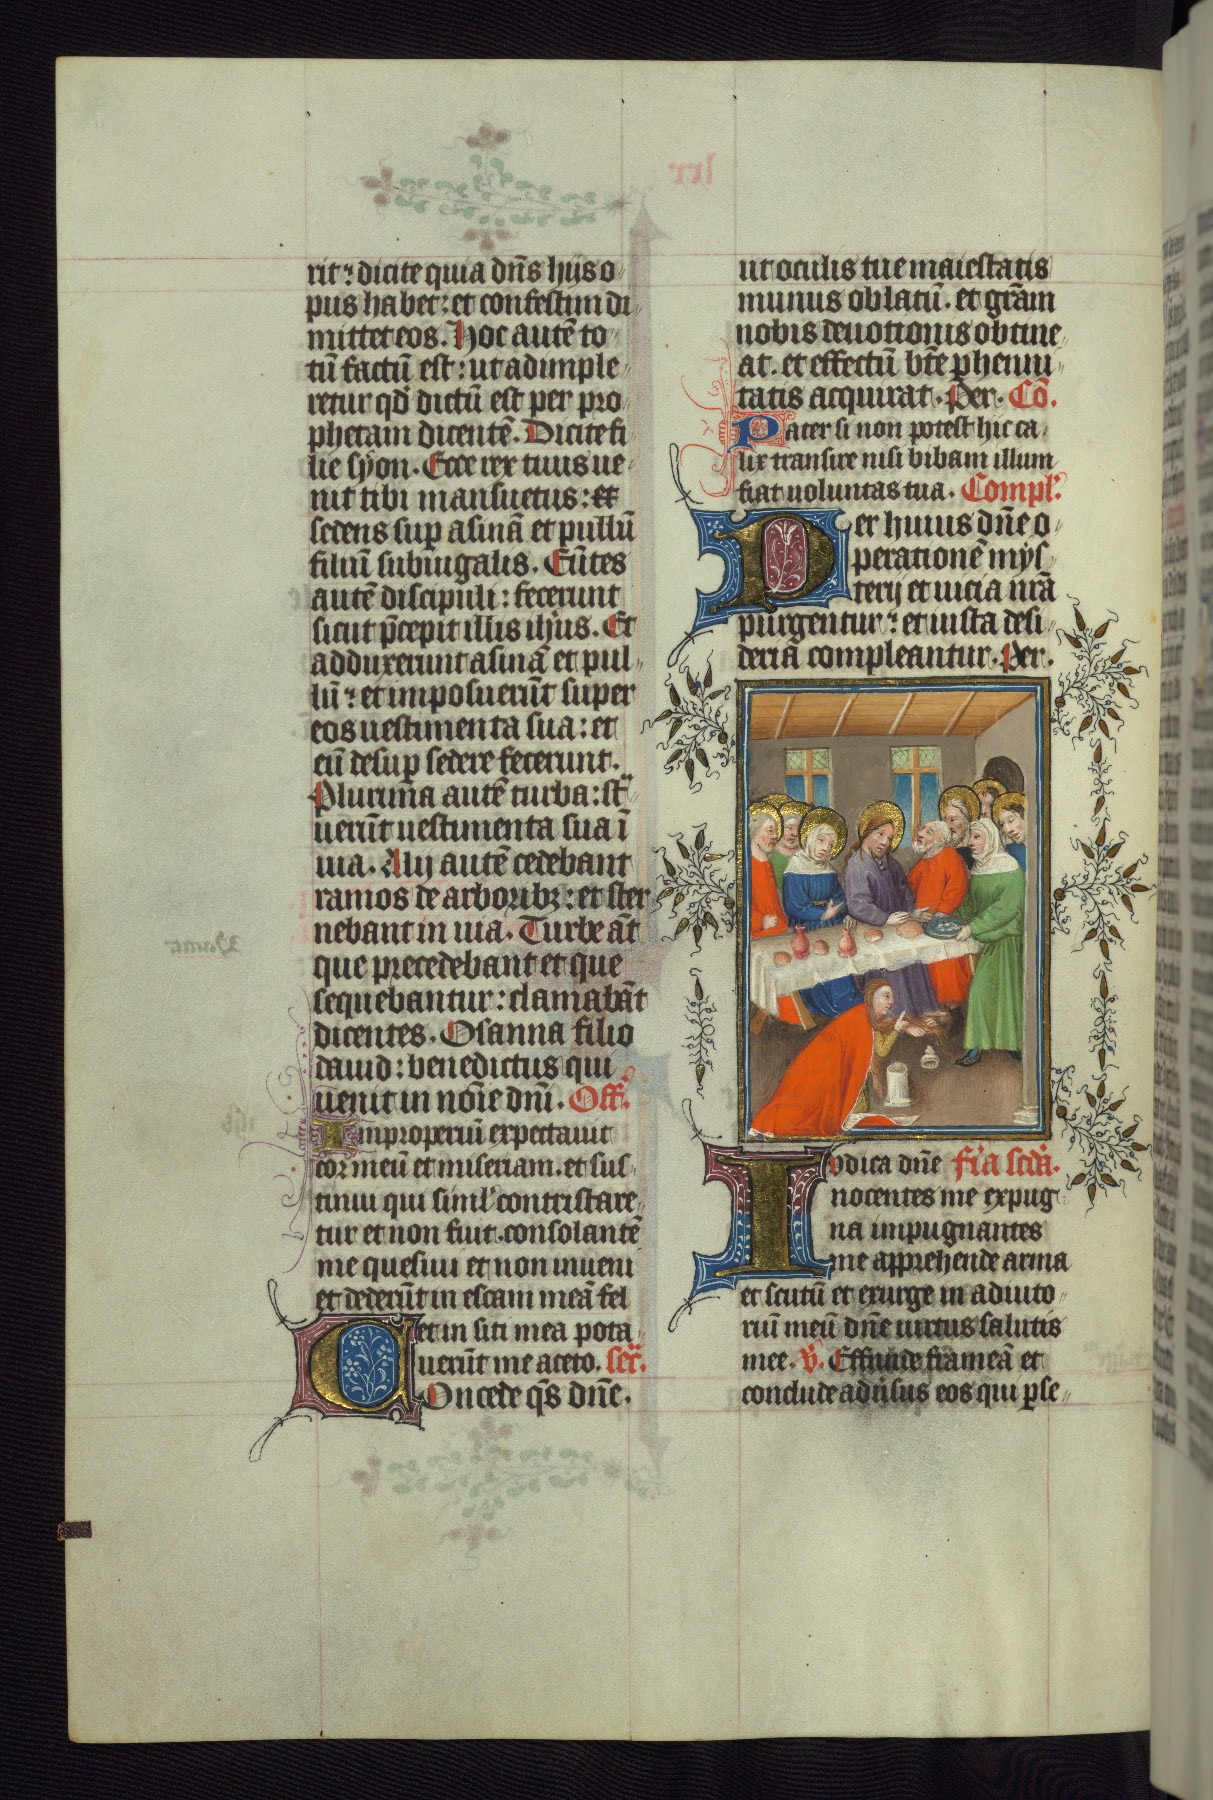 rit: dicite quia dñs hijs o
pus habet: et confestim di
mittet eos. Hoc autē to
tū factū est: ut adimple
retur qd dictū est per pro
phetam dicentē. Dicite fi
lie syon. Ecce rex tuus ue
nit tibi mansuetus: et
sedens sup asinā et pullū
filiū subiugalis. Eūtes
autē discipuli: fecerunt
sicut p̄cepit illis ih̄us. Et
adduxerunt asinā et pul
lū: et imposuerūt super
eos uestimenta sua: et
eū desup sedere fecerunt.
Plurima autē turba: st
uerūt uestimenta sua ī
uia. Alij autē cedebant
ramos de arboribz: et ster
nebant in uia. Turbe āt
que precedebant et que
sequebantur: clamabāt
dicentes. Osanna filio
dauid: benedictus qui
uenit in noīe dnī. Off.
Improperiū expectauit
cor meū et miseriam. et sus
tinui qui siml' contristare
tur et non fuit. consolantē
me quesiui et non inueni
et dederūt in escam meā fel
et in siti mea pota
uerūt me aceto. Secr.
Concede qs̄ dnē.
ut oculis tue maiestatis
munus oblatū. et grām
nobis deuotionis obtine
at. et effectū bt̄e phenni
tatis acquirat. Per. Cō.
Pater si non potest hic ca
lix transire nisi bibam illum
fiat uoluntas tua. Compl.
Per huius dnē o
perationē mys
terij et uicia nrā
purgentur: et iusta desi
deria compleantur. Per.
Iudica dnē fīa scdā.
nocentes me expug
na impugnantes
me apprehende arma
et scutū et exurge in adiuto
riū meū dnē uirtus salutis
mee. V̄. Effunde frameā et
conclude aduīsus eos qui pse